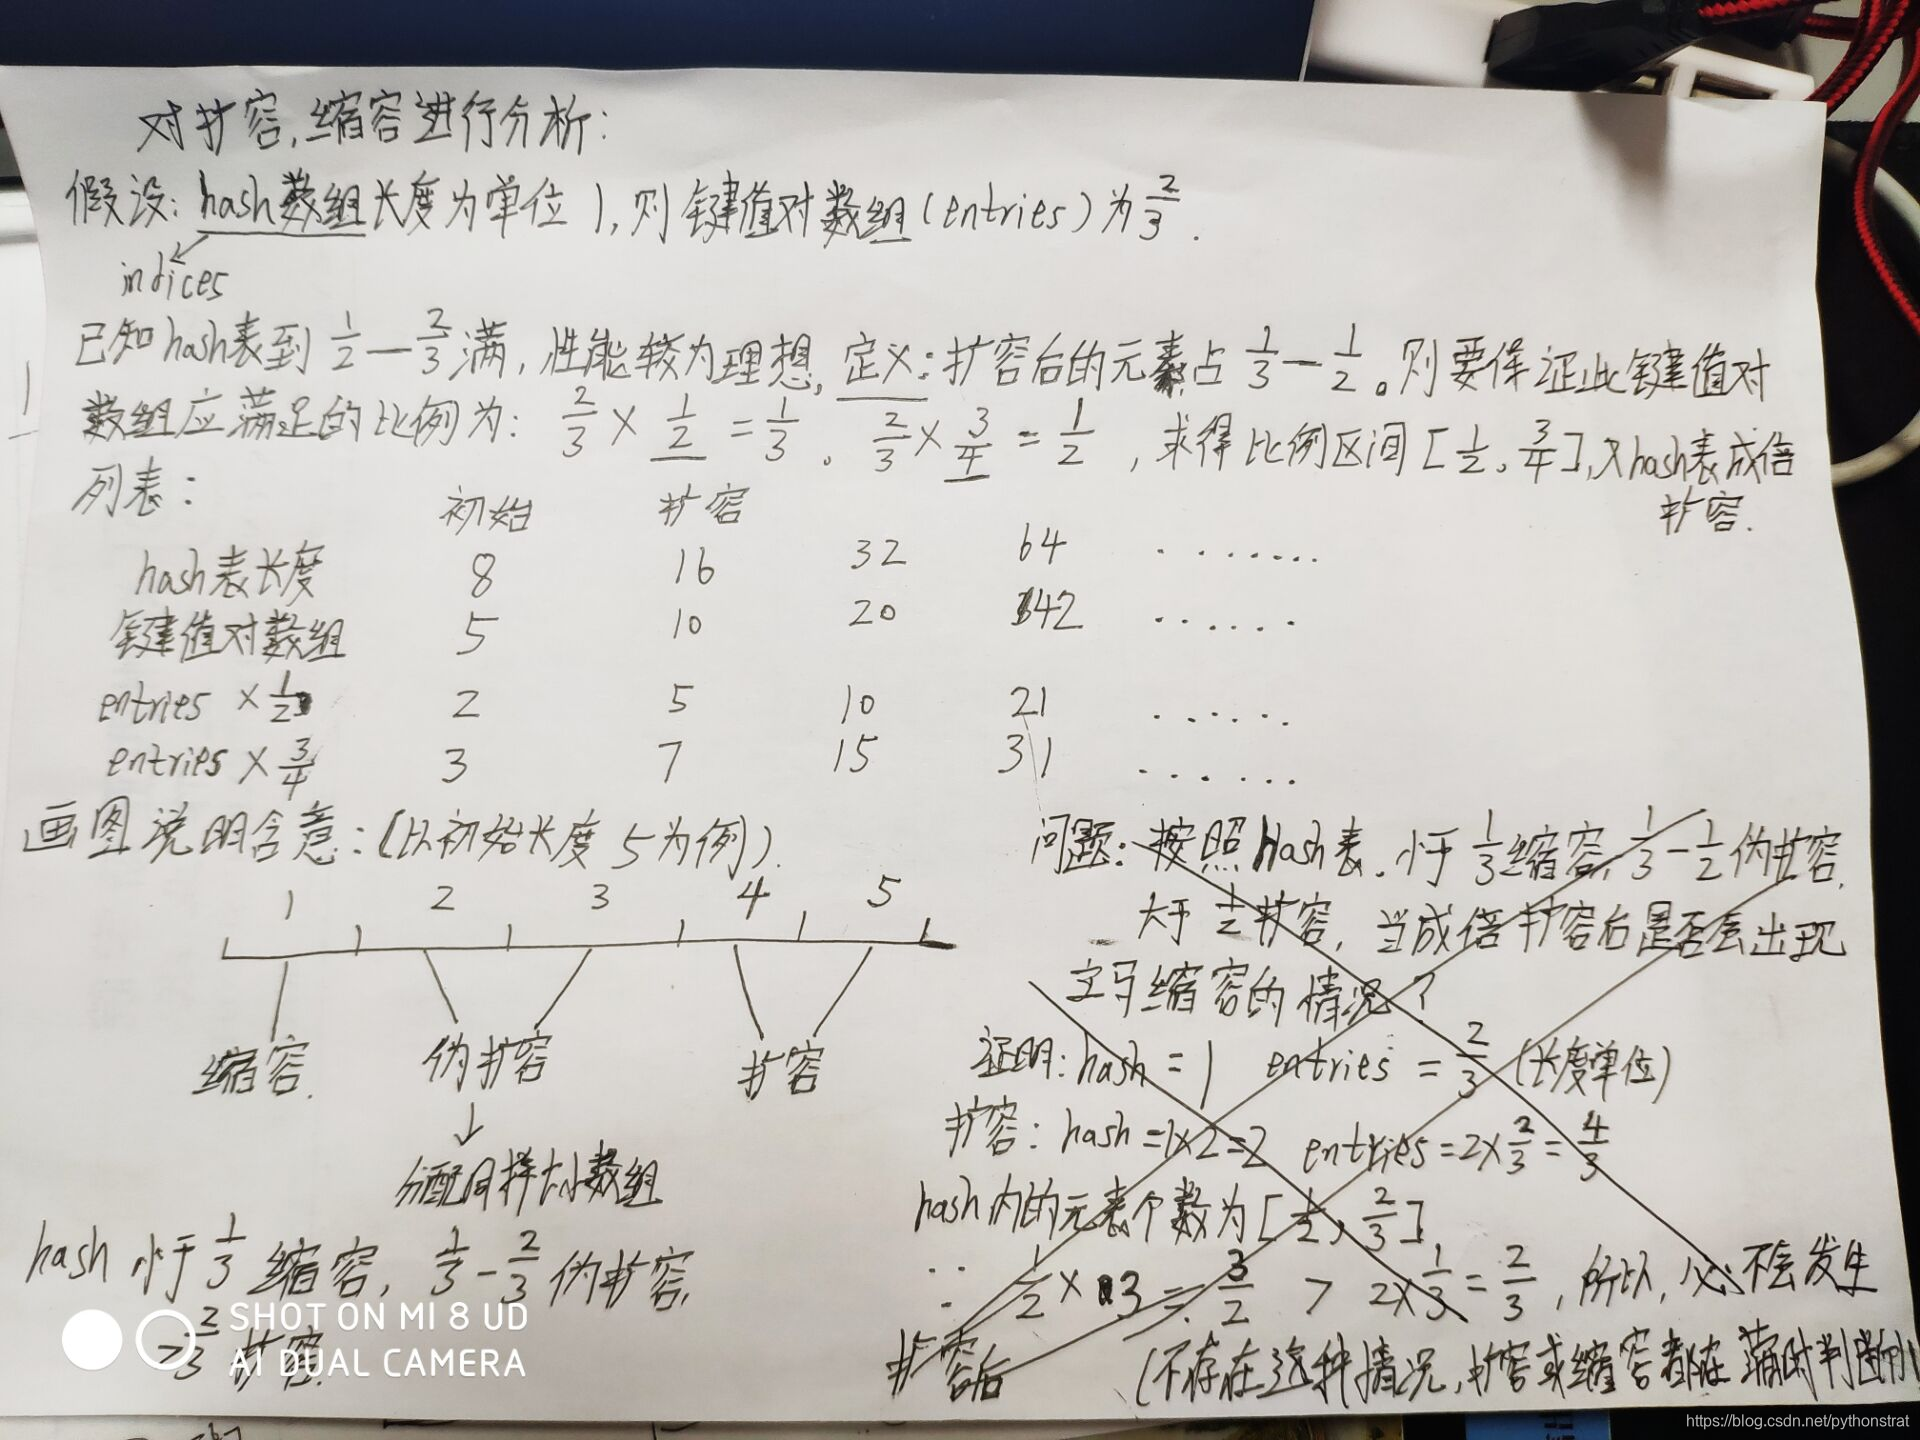 对扩容,缩容进行分析:
假设: hash数组长度为单位1,则键值对数组(entries)为2/3.
indices
已知hash表到1/2—2/3满,性能较为理想,定义:扩容后的元素占1/3—1/2。则要保证此键值对
数组应满足的比例为: 2/3×1/2=1/3。2/3×3/4=1/2,求得比例区间[1/2,3/4],又hash表成倍
扩容.
列表:
初始 扩容
hash表长度 8 16 32 64 ........
键值对数组 5 10 20 42 ......
entries ×1/2 2 5 10 21 ......
entries ×3/4 3 7 15 31 ......
画图说明含意:(以初始长度5为例).
1 2 3 4 5
缩容. 伪扩容 扩容
分配同样大小数组
hash 小于1/3 缩容, 1/3-2/3 伪扩容,
>2/3 扩容.
问题:按照Hash表.小于1/3缩容,1/3-1/2伪扩容.
大于1/2扩容,当成倍扩容后是否会出现
立马缩容的情况?
证明: hash=1 entries=2/3 (长度单位)
扩容: hash=1×2=2 entries=2×2/3=4/3
hash内的元素个数为[1/2,2/3]
∴ 1/2×3=3/2 > 2×1/3=2/3,所以,必不会发生
扩容后
(不存在这种情况,扩容或缩容都在满时判断
SHOT ON MI 8 UD
AI DUAL CAMERA
https://blog.csdn.net/pythonstrat